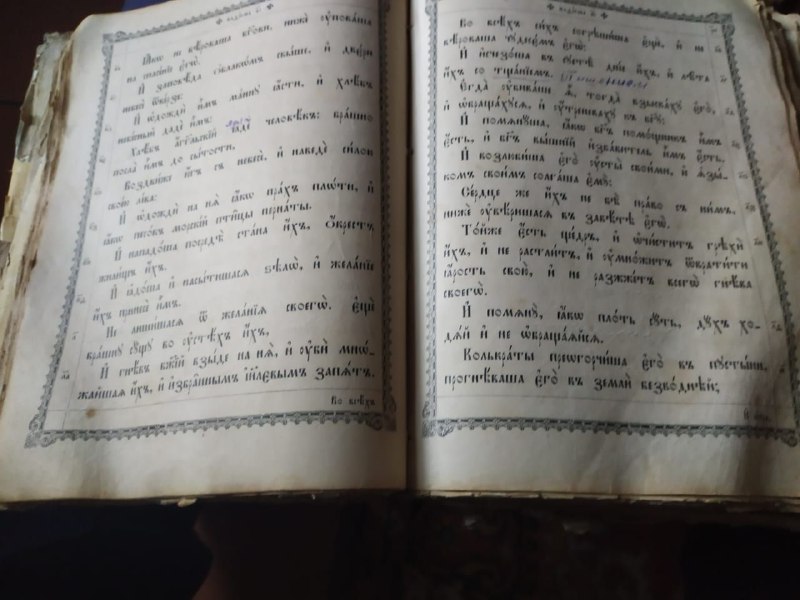 Ꙗ҆́кѡ не вѣ́роваша бг҃ови, нижѐ ᲂу҆пова́ша
на спⷭ҇нїе є҆гѡ̀.
И҆ заповѣ́да ѻ҆блакѡ́мъ свы́ше, и҆ две́ри
нб҃сѐ ѿве́рзе:
И҆ ѡ҆дождѝ и҆̀мъ ма́ннꙋ ꙗ҆́сти, и҆ хлѣ́бъ
нбⷭ҇ный дадѐ и҆̀мъ:
Хлѣ́бъ а҆́гг҃льскїй ꙗ҆дѐ человѣ́къ: бра́шно
посла̀ и҆̀мъ до сы́тости.
Воздви́же ю҆́гъ съ небесѐ, и҆ наведѐ си́лою
свое́ю лі́ва:
И҆ ѡ҆дождѝ на нѧ̀ ꙗ҆́кѡ пра́хъ плѡ́ти, и҆
ꙗ҆́кѡ песо́къ морскі́й пти̑цы перна̑ты.
И҆ нападо́ша посредѣ̀ ста́на и҆́хъ, ѻ҆́крестъ
жили́щъ и҆́хъ.
И҆ ꙗ҆до́ша и҆ насы́тишасѧ ѕѣлѡ̀, и҆ жела́нїе
и҆́хъ принесѐ и҆̀мъ.
Не лиши́шасѧ ѿ жела́нїѧ своегѡ̀. є҆щѐ
бра́шнꙋ сꙋ́щꙋ во ᲂу҆стѣ́хъ и҆́хъ,
И҆ гнѣ́въ бж҃їй взы́де на нѧ̀, и҆ ᲂу҆бѝ мнѡ́-
жайшаѧ и҆́хъ, и҆ и҆збра̑ннымъ і҆и҃лєвымъ запѧ́тъ.
Во всѣ́хъ
Во всѣ́хъ си́хъ согрѣши́ша є҆щѐ, и҆ не
вѣ́роваша чꙋдесє́мъ є҆гѡ̀:
И҆ и҆зчезо́ша въ сꙋетѣ̀ дні́е и҆́хъ, и҆ лѣ̑та
и҆́хъ со тща́нїемъ.
Є҆гда̀ ᲂу҆бива́ше ѧ҆̀, тогда̀ взыска́хꙋ є҆го̀,
и҆ ѡ҆браща́хꙋсѧ, и҆ ᲂу҆́треневахꙋ къ бг҃ꙋ:
И҆ помѧнꙋ́ша, ꙗ҆́кѡ бг҃ъ помо́щникъ и҆̀мъ
є҆́сть, и҆ бг҃ъ вы́шнїй и҆зба́витель и҆̀мъ є҆́сть.
И҆ возлюби́ша є҆го̀ ᲂу҆сты̑ свои́ми, и҆ ѧ҆зы́-
комъ свои́мъ солга́ша є҆мꙋ̀:
Се́рдце же и҆́хъ не бѣ̀ пра́во съ ни́мъ,
нижѐ ᲂу҆вѣ́ришасѧ въ завѣ́тѣ є҆гѡ̀.
То́йже є҆́сть ще́дръ, и҆ ѡ҆чи́ститъ грѣхѝ
и҆́хъ, и҆ не растли́тъ, и҆ ᲂу҆мно́житъ ѿврати́ти
ꙗ҆́рость свою̀, и҆ не разжже́тъ всегѡ̀ гнѣ́ва
своегѡ̀.
И҆ помѧнꙋ̀, ꙗ҆́кѡ пло́ть сꙋ́ть, дꙋ́хъ хо-
дѧ́й и҆ не ѡ҆браща́ѧйсѧ.
Колькра́ты преѡгорчи́ша є҆го̀ въ пꙋсты́ни,
прогнѣ́ваша є҆го̀ въ землѝ безво́днѣй;